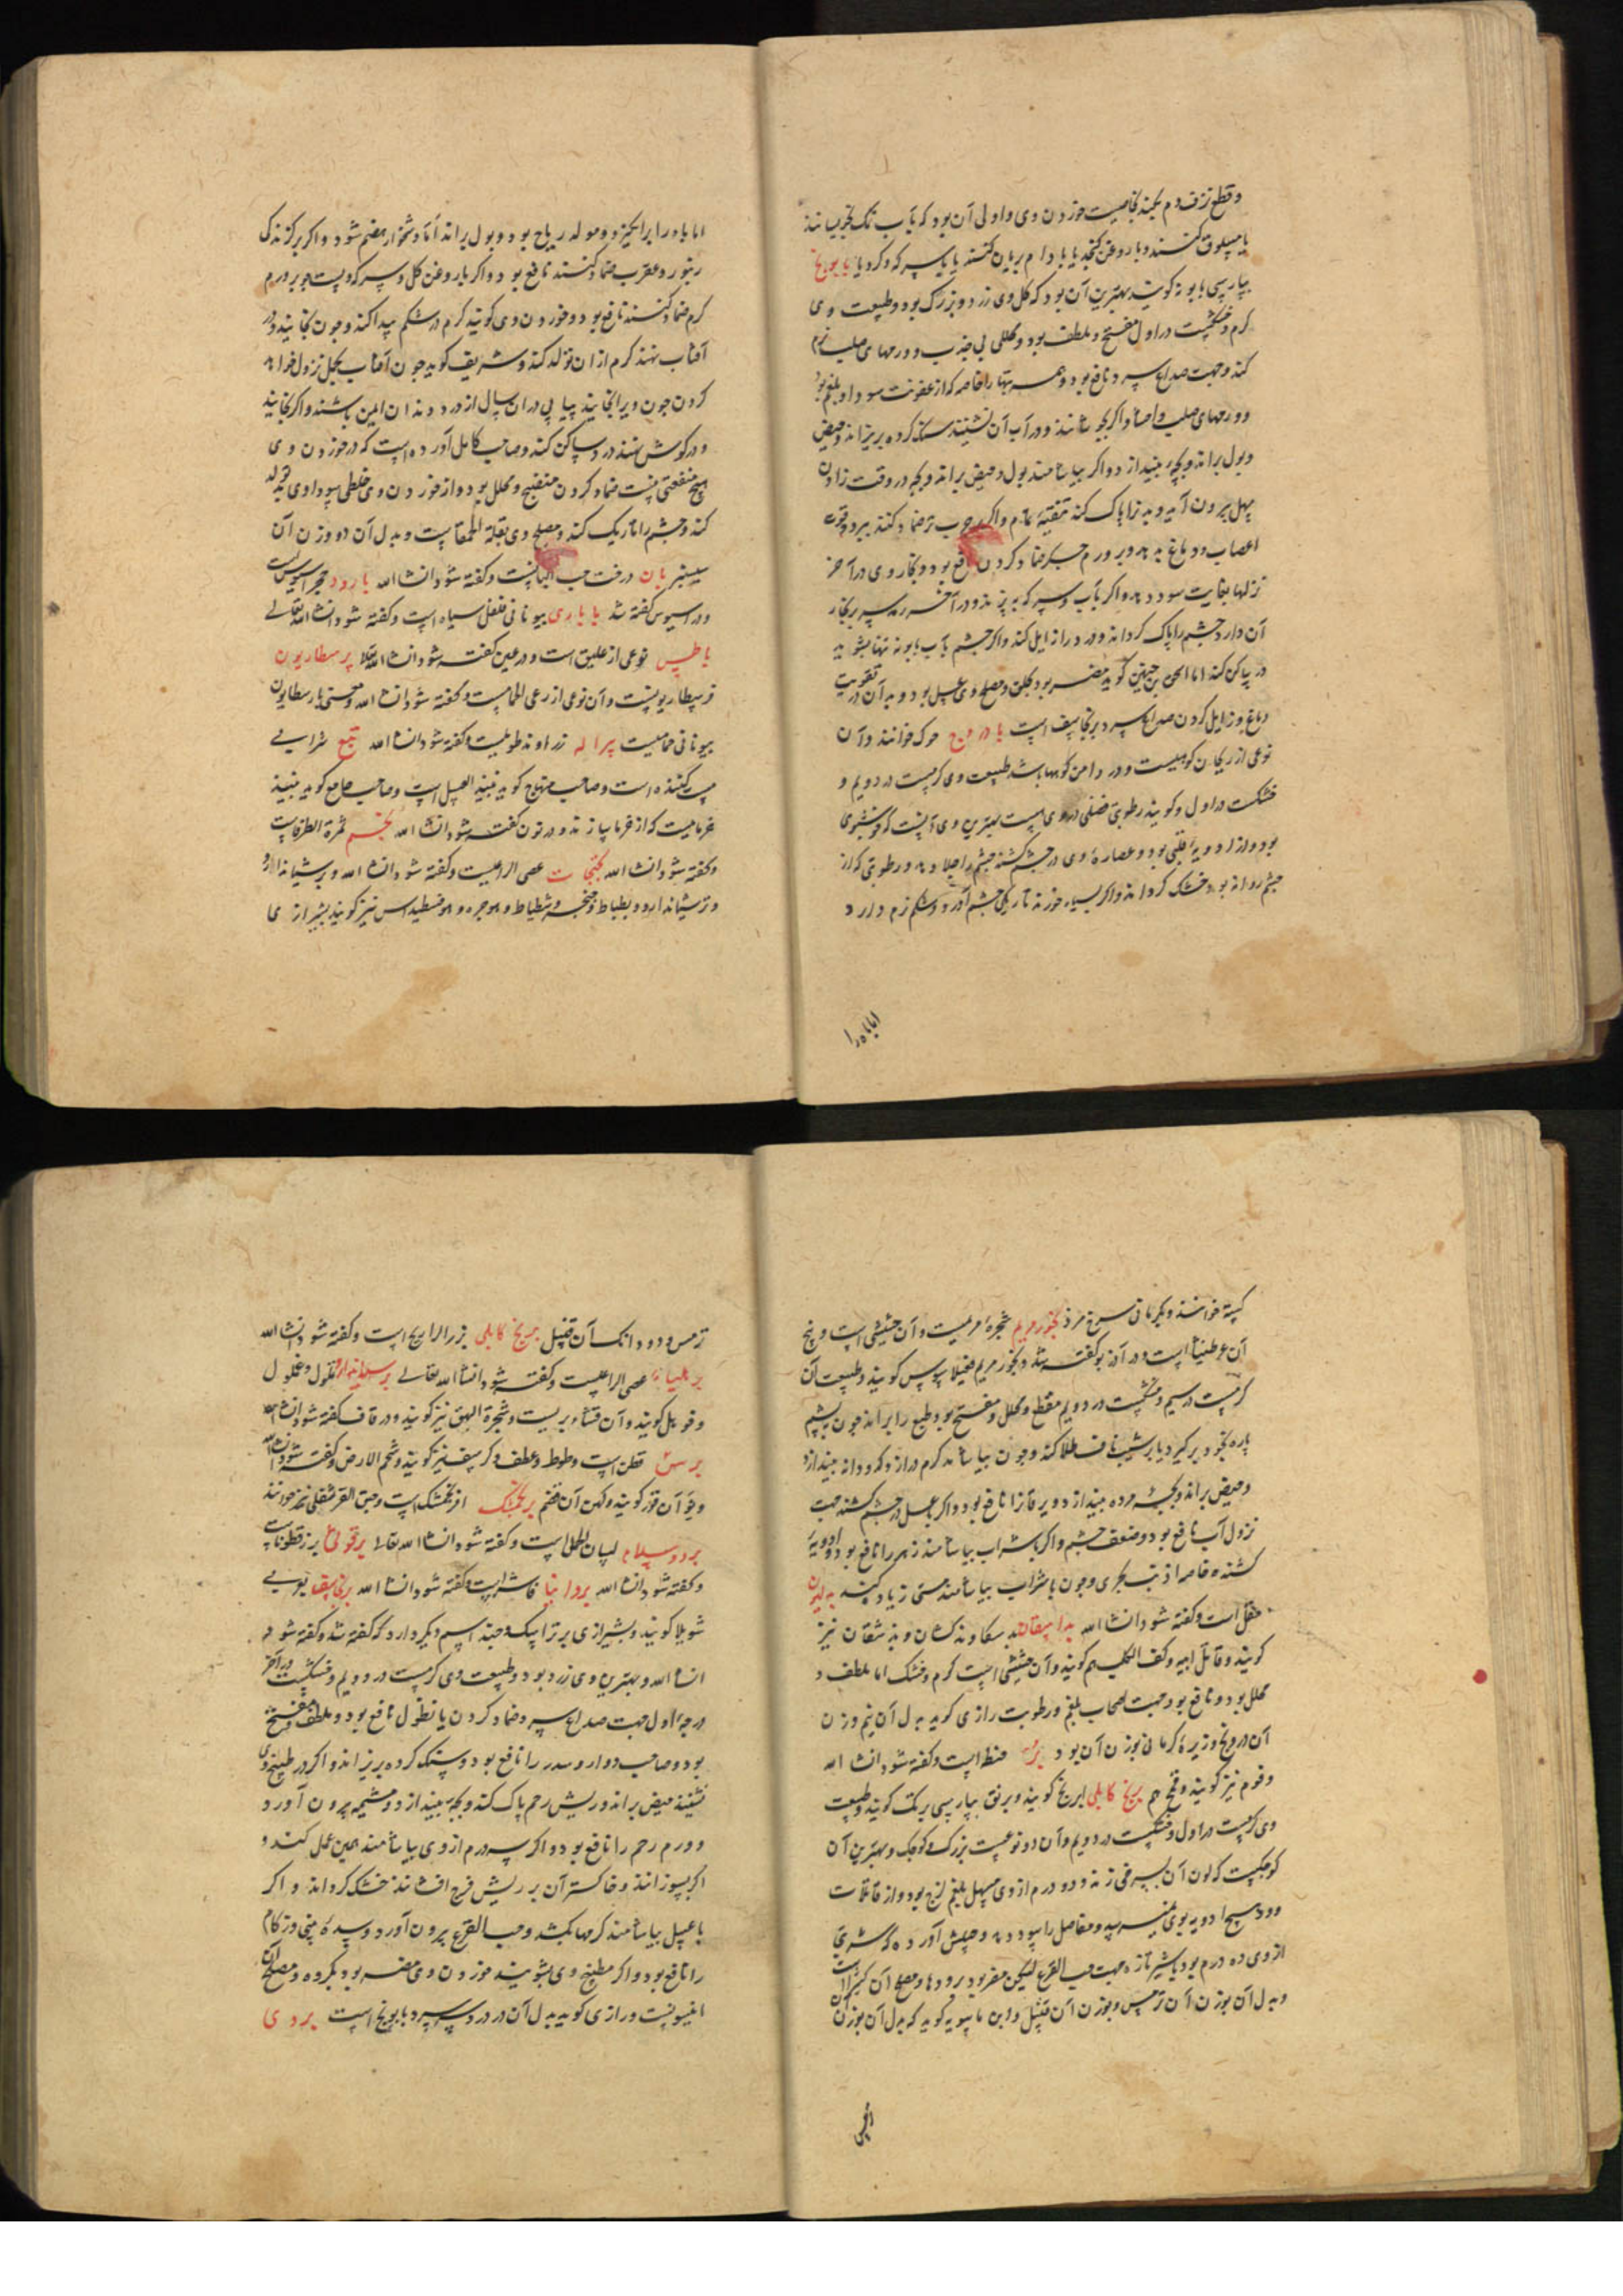 و قطع نزف دم بکند بخاصیت خوردن وی و اولی آن بود که بآب نمک
یا مسلوق کنند و با روغن کنجد یا بادام بریان کنند یا با سرکه و کرویا بابونج
بپارسی بابونه کویند بهترین آن بود که کل وی زرد و بزرک بود و طبیعت وی
کرم و خشکست در اول مفتح و ملطف بود و محلل بی جذب و ورمهای صلب نرم
کند و جهت صداع سرد نافع بود و همه تبها را خاصه که از عفونت سودا و بلغم بود
و ورمهای صلب و احشا و اکر بجوشانند و در آب آن نشینند سنک کرده بریزاند و حیض
و بول براند و بچه بیندازد و اکر بیاشامند بول و حیض براند و بچه در وقت زادن
سهل بیرون آید و بدن را پاک کند تنقیه تمام و اکر بر جرب تر ضماد کنند ببرد و قوت
اعصاب و دماغ بدهد و بر ورم جکر ضماد کردن نافع بود و بخار وی در آخر
نزلها بغایت سود دهد و اکر بآب و سرکه بپزند و در آخر رمد سر بر بخار
آن دارد چشم را پاک کرداند و درد زایل کند و اکر چشم بآب بابونه تنها بشوید
درد ساکن کند اما اسحق بن حنین کوید مضر بود بحلق و مصلح وی عسل بود و بدل آن در تقویت
دماغ و زایل کردن صداع سرد برنجاسف است بادروج حوک خوانند و آن
نوعی از ریحان کوهیست و در دامن کوهها باشد طبیعت وی کرمست در دویم و
خشکست در اول و کویند رطوبتی فضلی در وی هست بهترین وی آنست که خوشبوی
بود و از ادویه قلبی بود و عصاره وی در چشم کشند چشم را جلا دهد و رطوبتی که از
چشم روانه بود خشک کرداند و اکر بسیار خورند تاریکی چشم آورد و شکم نرم دارد
اما باه را
اما باه را برانکیزد و مولد ریاح بود و بول براند اما دشخوار هضم شود و اکر بر کزندکی
زنبور و عقرب ضماد کنند نافع بود و اکر با روغن کل و سرکه و پست جو بر ورم
کرم ضماد کنند نافع بود و خوردن وی کویند کرم در شکم پیدا کند و چون بخایند و در
آفتاب نهند کرم از آن تولد کند و شریف کوید چون آفتاب بحمل نزول خواهد
کردن چون ویرا بخایند پیاپی در آن سال از درد دندان ایمن باشند و اکر بخایند
و در کوش نهند درد ساکن کند و صاحب کامل آورده است که در خوردن وی
هیچ منفعتی نیست ضماد کردن منضج و محلل بود و از خوردن وی خلطی سوداوی تولد
کند و چشم را تاریک کند و مصلح وی بقلة الحمقاست و بدل آن دو وزن آن
سیسنبر بان درخت حب البانست و کفته شود انشا الله بارود حجر اسیوس است
و در اسیوس کفته شد باباری بیونانی فلفل سیاه است و کفته شود انشا الله تعالی
باطس نوعی از علیق است و در عین کفته شود انشا الله تعالی برسطاریون
فرسطاریونست و آن نوعی از رعی الحمامست و کفته شود انشا الله و معنی بارسطاریون
بیونانی حمامست پراله زراوند طویلست و کفته شود انشا الله تبع شرابی
مست کننده است و صاحب منهاج کوید نبیذ العسل است و صاحب جامع کوید نبیذ
خرماست که از خرما سازند و در نون کفته شود انشا الله بجم ثمرة الطرفاست
و کفته شود انشا الله بختجات عصی الراعیست و کفته شود انشا الله و برشیاندارو
و ترشیاندارو و بطباط و خنجر و شطباط و هوجره و هوفسطیداس نیز کویند بشیرازی
کسته خوانند و بکرمانی سرخ مرد بخور مریم شجره مریمست و آن حشیشی است و بیخ
آن عرطنیثا است و در آذریو کفته شد و بخور مریم فقیلامیوس کویند و طبیعت آن
کرمست در سیم و خشکست در دویم مقطع و محلل و مفتح بود طبع را براند چون پشم
پاره بخود برکیرد یا بر شیب ناف طلا کند و چون بیاشامد کرم دراز و کدودانه بیندازد
و حیض براند و بچه مرده بیندازد و یرقان را نافع بود و اکر با عسل در چشم کشند جهت
نزول آب نافع بود و ضعف چشم و اکر با شراب بیاشامند زهر را نافع بود و ادویه
کشنده خاصه ارنب بحری و چون با شراب بیاشامند مستی زیاد کند بدلیون
مقل است و کفته شود انشا الله بداسقان بدسکان و بدکشان و بدشقان نیز
کویند و قاتل ابیه و کف الکلب هم کویند و آن حشیشی است کرم و خشک اما ملطف و
محلل بود و نافع بود جهت اصحاب بلغم و رطوبت رازی کوید بدل آن نیم وزن
آن دروج و زیره کرمانی بوزن آن بود بر حنطه است و کفته شود انشا الله
و فوم نیز کویند و قمح هم برنج کابلی ابرنج کویند و برنق بپارسی برنک کویند و طبیعت
وی کرمست در اول و خشکست در دویم و آن دو نوعست بزرک و کوچک و بهترین آن
کوچکست که لون آن بسرخی زند و دو درم از وی مسهل بلغم لزج بود و از قاتلات
دود هیچ ادویه بوی نمیرسد و مفاصل را سود دهد و حبیش آورده که شربتی
از وی ده درم بود با شیر تازه جهت حب القرع لیکن مضر بود برودها و مصلح آن کثیرا است
و بدل آن بوزن آن ترمس و بوزن آن قنبیل و ابن ماسویه کوید که بدل آن بوزن آن
ترمس و دو دانک آن قنبیل برنج کابلی بزر الرازیانج است و کفته شود انشا الله
برطیاء عصی الراعیست و کفته شود انشا الله تعالی برسیاندارو
و آن قثاء بریست و شجرة البهق نیز کویند و در قاف کفته شود انشا الله
برس قطن است و طوط و عطف و کرسف نیز کویند و شحم الارض و کفته شود انشا الله
و نو آن قور کویند و کهن آن قضم برنجمشک افرنجمشک است و حبق القرنفلی نیز خوانند
برد و سلام لسان الحمل است و کفته شود انشا الله تعالی برقونی بزرقطوناست
و کفته شود انشا الله بروانیا فاشرا است و کفته شود انشا الله برنجاسف
شویلا کویند و بشیرازی برتراسک و چند اسم دیکر دارد که کفته شد و کفته شود
انشا الله و بهترین وی زرد بود و طبیعت وی کرمست در دویم و خشکست در آخر
درجه اول جهت صداع سرد ضماد کردن یا نطول نافع بود و ملطف و مفتح
بود و صاحب دوار و سدر را نافع بود و سنک کرده بریزاند و اکر در طبیخ وی
نشینند حیض براند و ریش رحم پاک کند و بچه بیندازد و مشیمه بیرون آورد
و ورم رحم را نافع بود و اکر سه درم از وی بیاشامند همین عمل کند و
اکر بسوزانند و خاکستر آن بر ریش فرج افشانند خشک کرداند و اکر
با عسل بیاشامند کرمها بکشد و حب القرع بیرون آورد و سده بینی و زکام
را نافع بود و اکر بمطبوخ وی بشویند خوردن وی مضر بود بکرده و مصلح آن
انیسونست و رازی کوید بدل آن در درد سر سرد بابونج است بردی